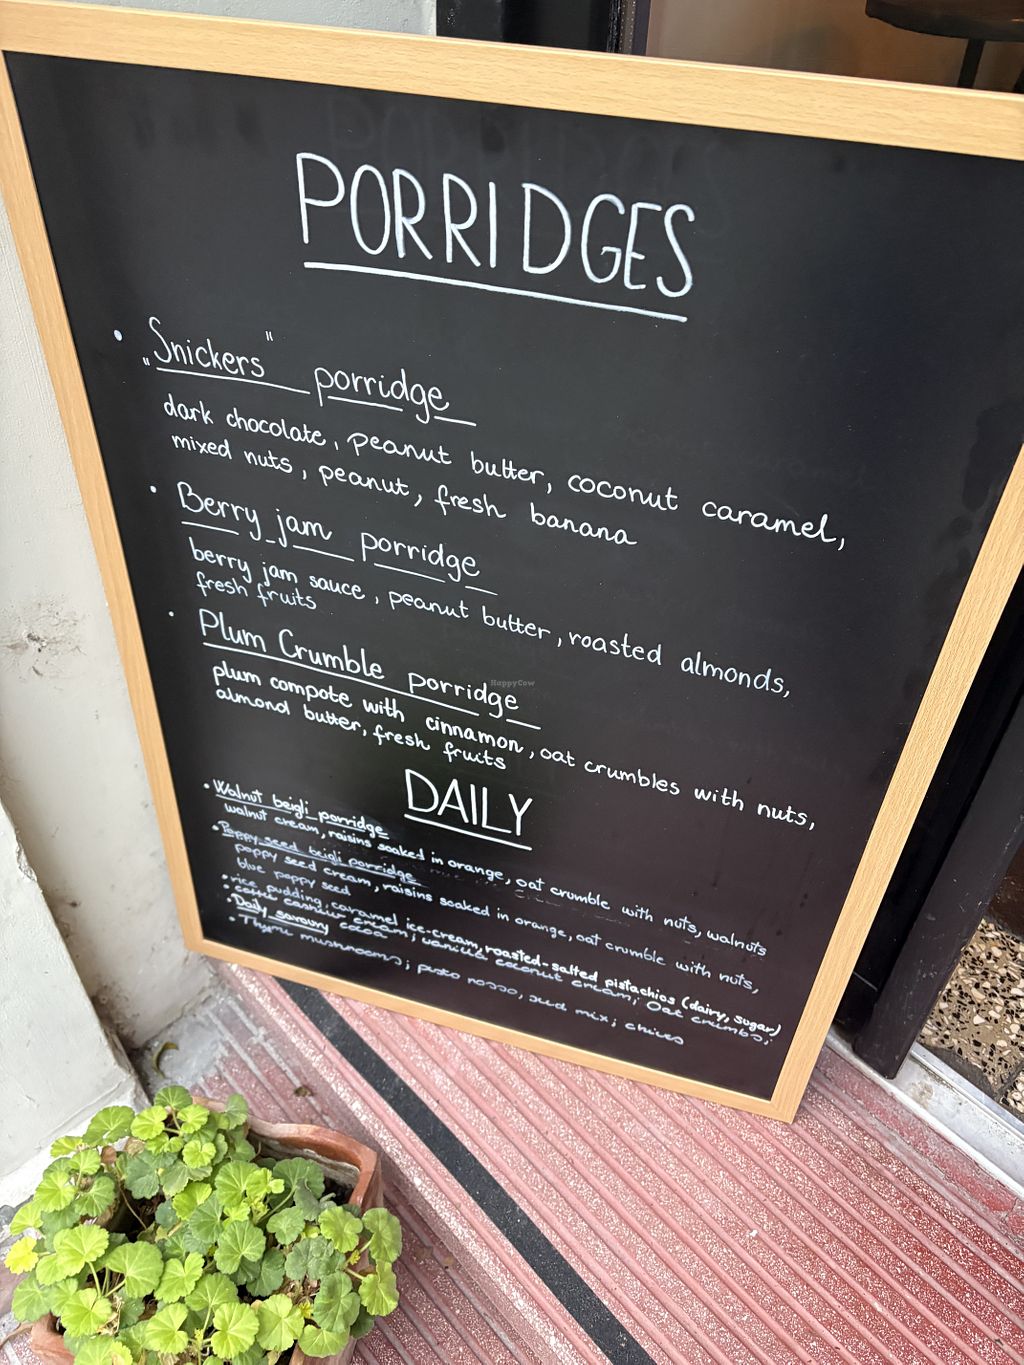 PORRIDGES
• „Snickers" porridge
dark chocolate, peanut butter, coconut caramel,
mixed nuts, peanut, fresh banana
• Berry jam porridge
berry jam sauce, peanut butter, roasted almonds,
fresh fruits
• Plum Crumble porridge
plum compote with cinnamon, oat crumbles with nuts,
almond butter, fresh fruits
DAILY
• Walnut beigli porridge
walnut cream, raisins soaked in orange, oat crumble with nuts, walnuts
• Poppy seed beigli porridge
poppy seed cream, raisins soaked in orange, oat crumble with nuts,
blue poppy seed
• rice pudding, caramel ice-cream, roasted-salted pistachios (dairy, sugar)
• cashew cream; vanilla coconut cream; Oat crumbs;
cocoa
Daily savoury
• Thyme mushrooms; pesto rosso, seed mix; chives
HappyCow